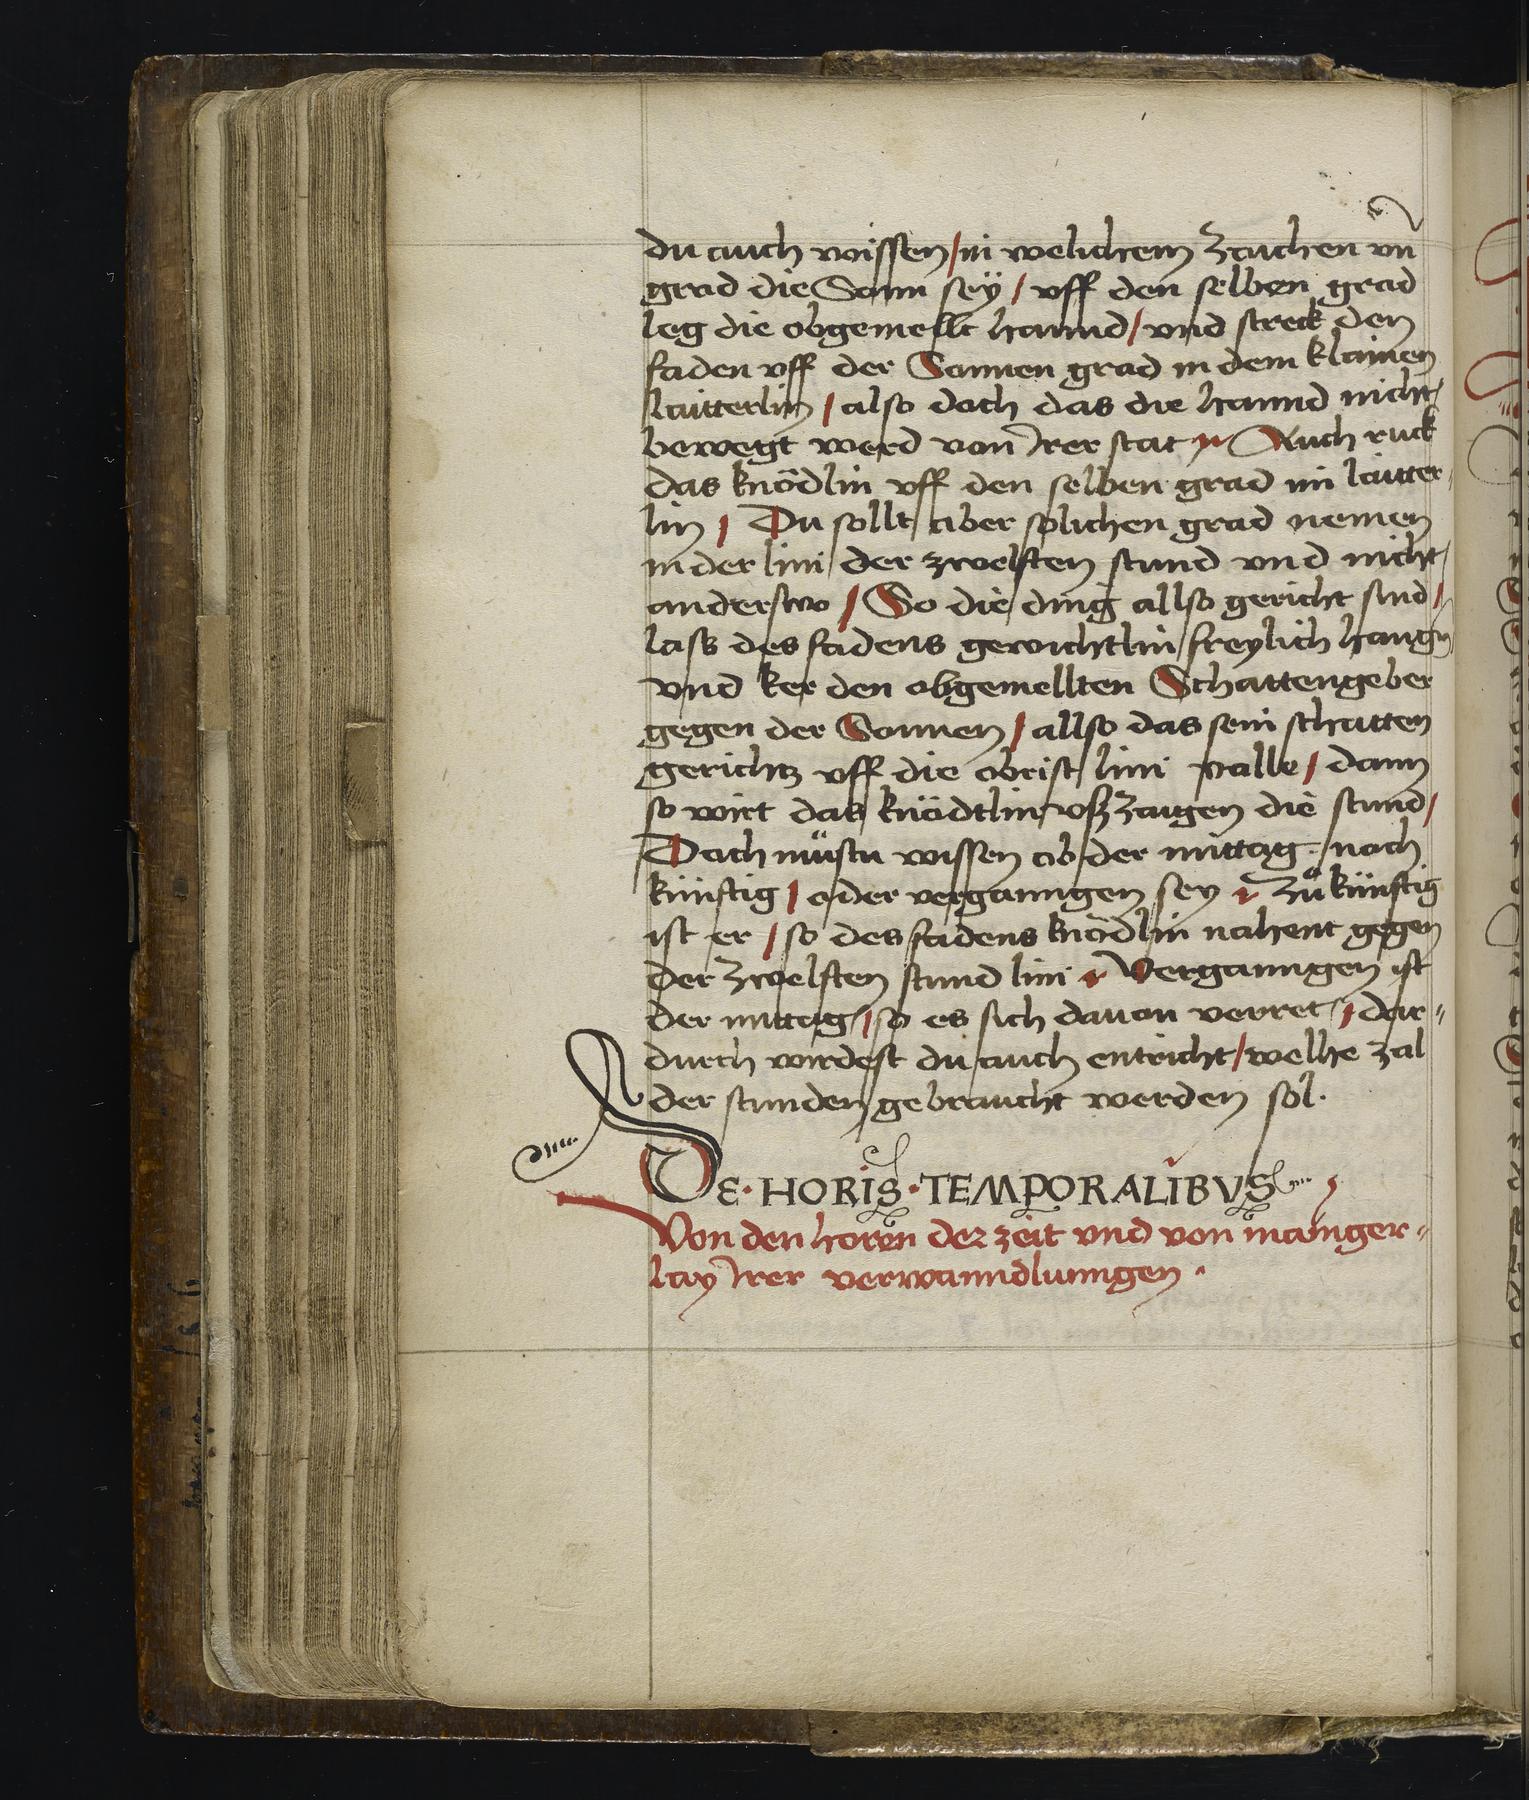 du auch wissen / in welichem zaichen vn̄
grad die Sonn sey / vff den selben grad
leg die obgemellt hannd / vnd streck den
faden vff der Sonnen grad in dem klainen
laitterlin / also doch das die hannd nicht
bewegt werd von Irer stat Auch ruck
das knödlin vff den selben grad im laitter-
lin / Du sollt aber solichen grad nemen
in der lini der zwelften stund vnd nicht
anderswo / So die ding allso gericht sind /
lass des fadens gewichtlin freylich hangn
vnd ker den obgemellten Schattengeber
gegen der Sonnen / allso das sein schatten
gerichtz vff die obrist lini valle / dann
so wirt das knödtlin vßzaigen die stund /
Doch müstu wissen ob der mittag noch
künftig / oder verganngen sey Zůkünftig
ist er / so des fadens knödlin nahent gegen
der zwelften stund lini Verganngen ist
der mittag / so es sich dauon verret / dar-
durch wirdest du auch entricht / welhe zal
der stunden gebraucht werden sol.
DE · HORIS · TEMPORALIBVS
Von den horen der zeit vnd von mainger-
lay Irer verwanndlunngen .